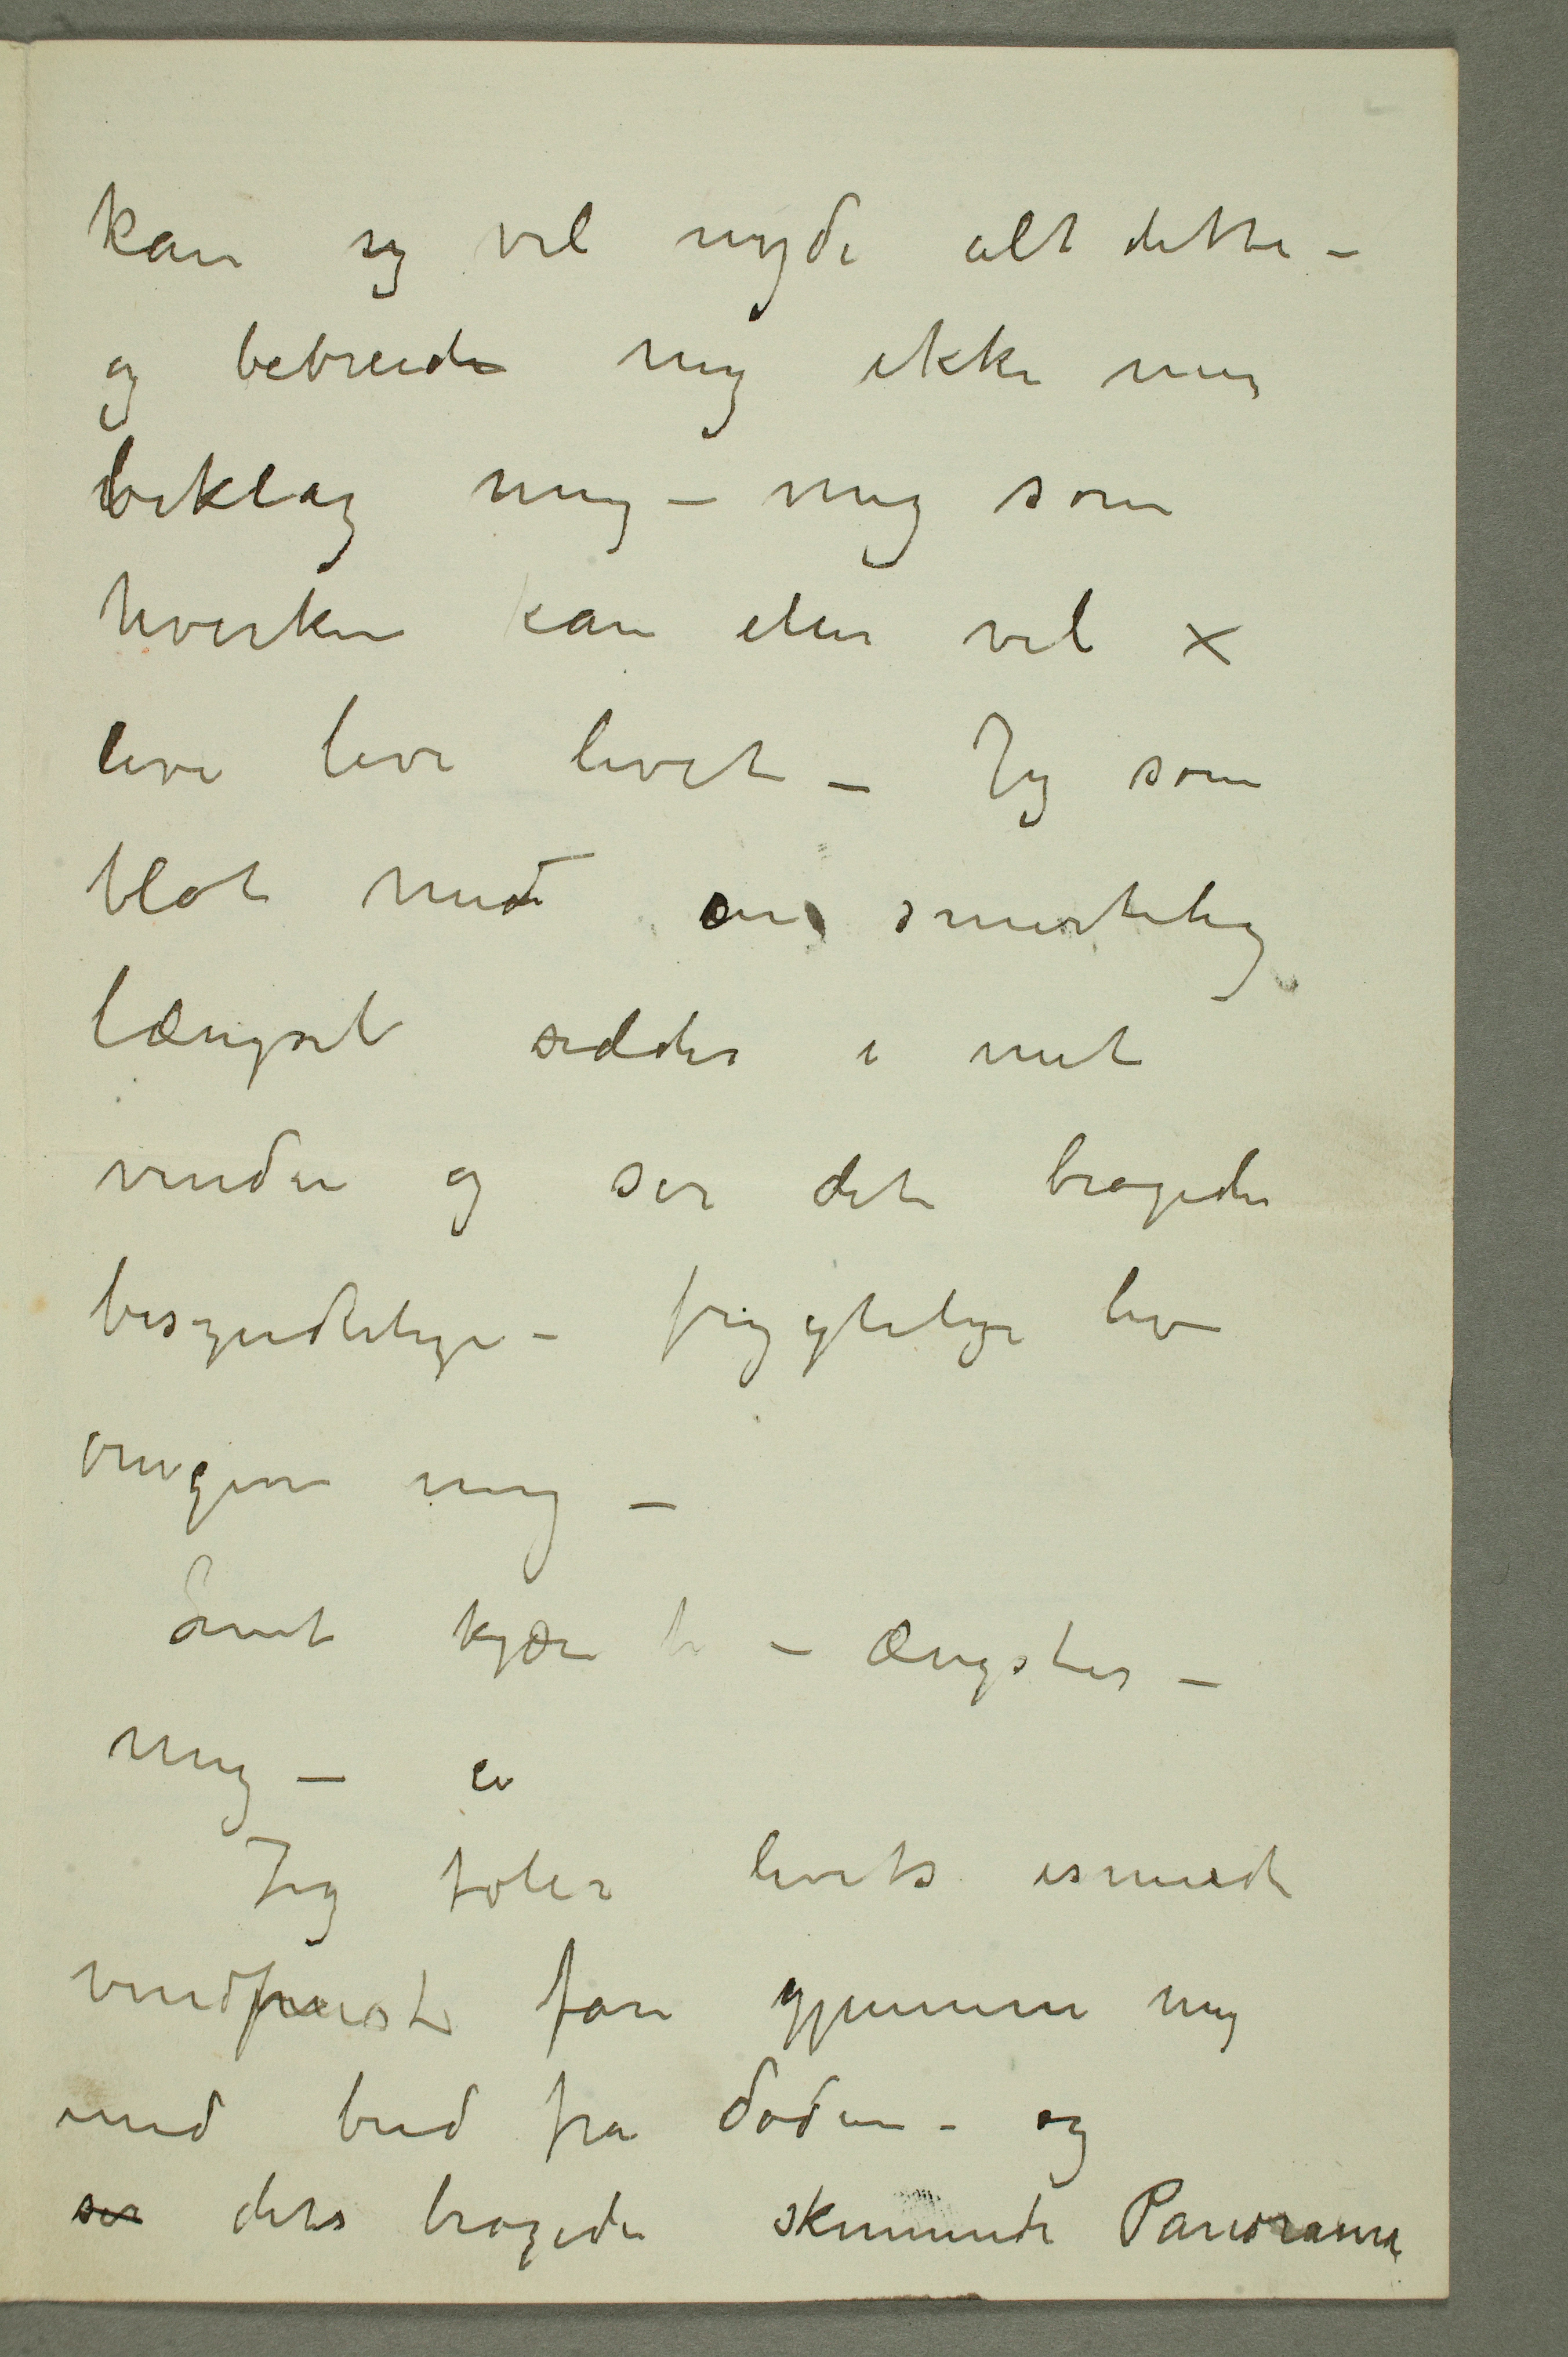 kan og vil nyde alt dette –
og bebreide mig ikke men
beklag mig – mig som
hverken kan eller vil ×
leve leve livet – Jeg som
blot med en smertelig
længsel sidder i mit
vindu og ser det brogede
besynderlige – frygtelige liv
omgive mig –
Livet kjære – ængster –
mig –
Jeg føler livets isnende
vindpust fare gjennem mig
med bud fra døden – og
ser dets brogede skinnende Panorama